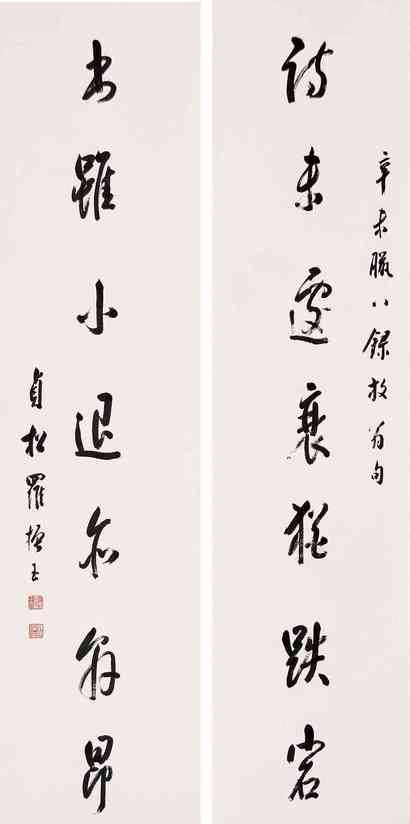 辛未臘八錄放翁句
詩未遽衰猶跌宕
書雖小退亦軒昂
貞松羅振玉